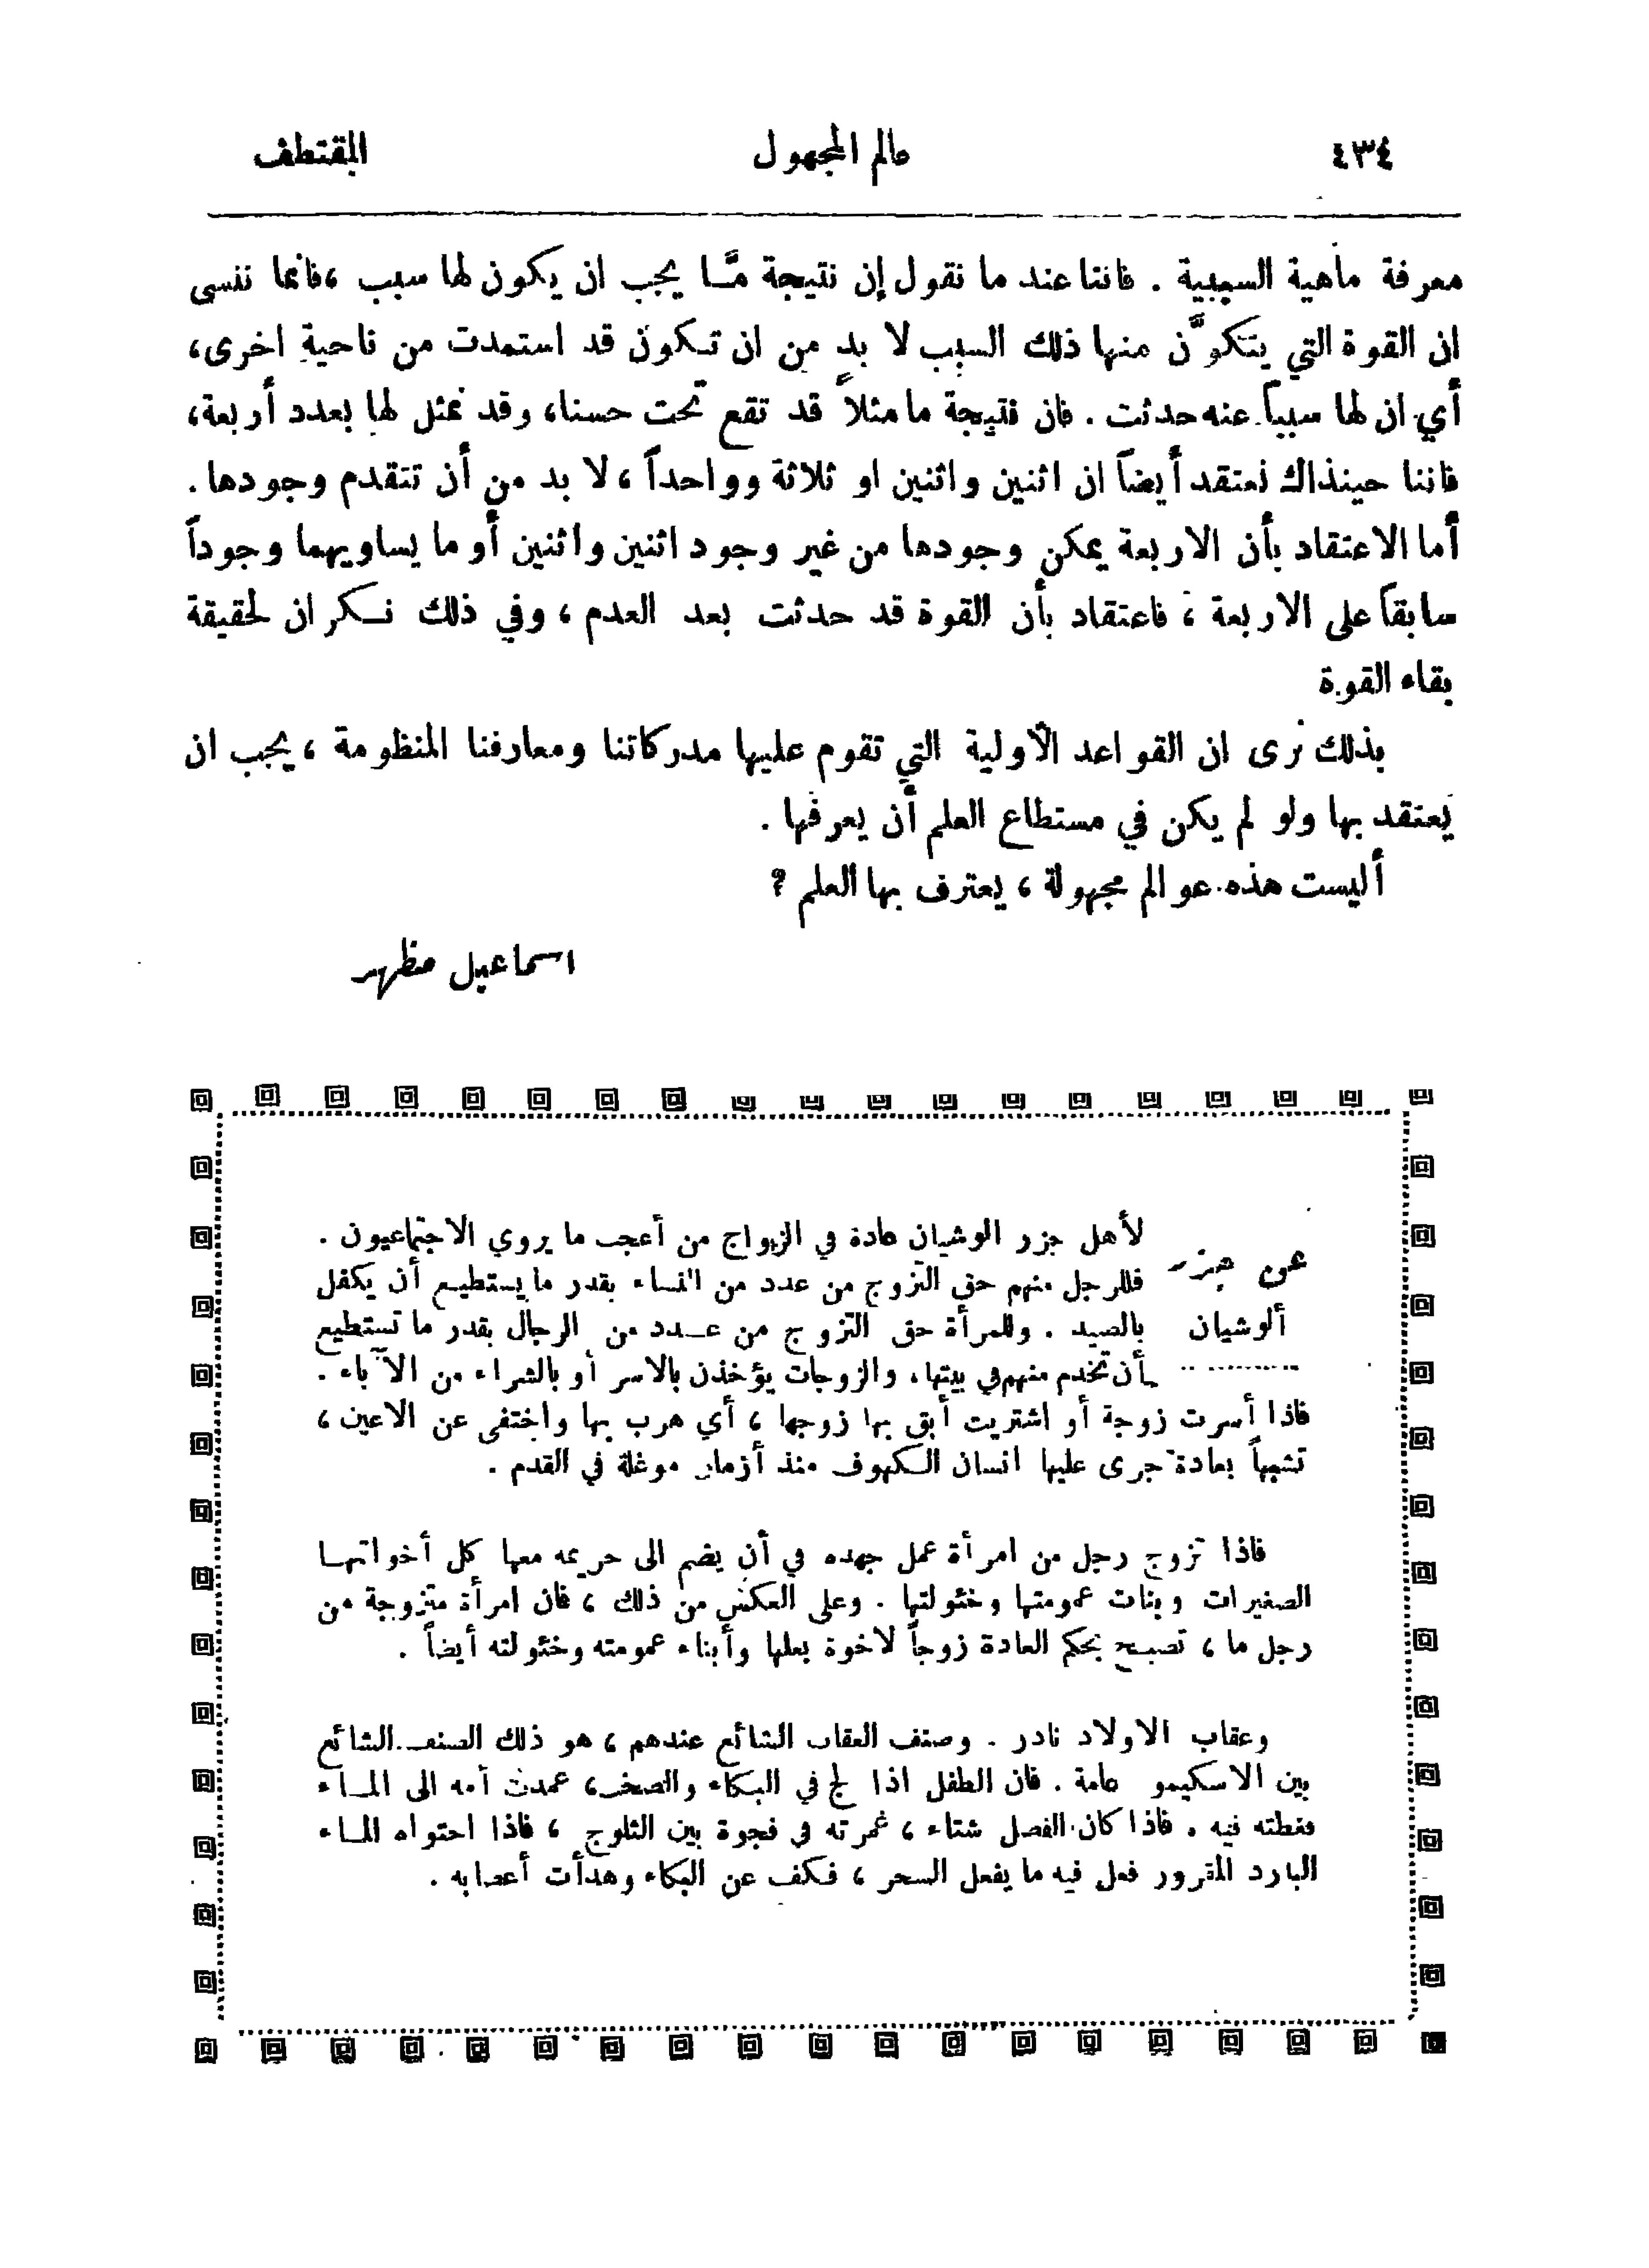 ٤٣٤ عالم المجهول المقتطف
معرفة ماهية السببية . فاننا عند ما نقول إن نتيجة مَّـا يجب ان يكون لها سبب ، فانما ننسى
ان القوة التي يتكوَّن منها ذلك السبب لا بد من ان تكون قد استمدت من ناحية اخرى،
أي ان لها سبباً عنه حدثت . فان نتيجة ما مثلاً قد تقع تحت حسنا، وقد نمثل لها بعدد أربعة،
فاننا حينذاك نعتقد أيضاً ان اثنين واثنين او ثلاثة وواحداً ، لا بد من أن تتقدم وجودها .
أما الاعتقاد بأن الاربعة يمكن وجودها من غير وجود اثنين واثنين أو ما يساويهما وجوداً
سابقاً على الاربعة ، فاعتقاد بأن القوة قد حدثت بعد العدم ، وفي ذلك نـكران لحقيقة
بقاء القوة
بذلك نرى ان القواعد الأولية التي تقوم عليها مدركاتنا ومعارفنا المنظومة ، يجب ان
يعتقد بها ولو لم يكن في مستطاع العلم أن يعرفها .
أليست هذه عوالم مجهولة ، يعترف بها العلم ؟
اسماعيل مظهر
عن جزر
ألوشيان
لأهل جزر الوشيان عادة في الزواج من أعجب ما يروي الاجتماعيون .
فللرجل منهم حق التزوج من عدد من النساء بقدر ما يستطيـع أن يكفل
بالصيد . وللمرأة حق التزوج من عـدد من الرجال بقدر ما تستطيع
أن تخدم منهم في بيتها، والزوجات يؤخذن بالاسر أو بالشراء من الآباء .
فاذا أسرت زوجة أو اشتريت أبق بها زوجها ، أي هرب بها واختفى عن الاعين ،
تشبهاً بعادة جرى عليها انسان الـكهوف منذ أزمان موغلة في القدم .
فاذا تزوج رجل من امرأة عمل جهده في أن يضم الى حريمه معها كل أخواتهـا
الصغيرات وبنات عمومتها وخئولتها . وعلى العكس من ذلك ، فان امرأة متزوجة من
رجل ما ، تصبـح بحكم العادة زوجاً لاخوة بعلها وأبناء عمومته وخئولته أيضاً .
وعقاب الاولاد نادر . وصنف العقاب الشائع عندهم ، هو ذلك الصنف الشائع
بين الاسكيمو عامة . فان الطفل اذا لج في البكاء والصخب، عمدت أمه الى المـاء
فغطته فيه . فاذا كان الفصل شتاء ، غمرته في فجوة بين الثلوج ، فاذا احتواه المـاء
البارد المقرور فعل فيه ما يفعل السحر ، فـكف عن البكاء وهدأت أعصابه .